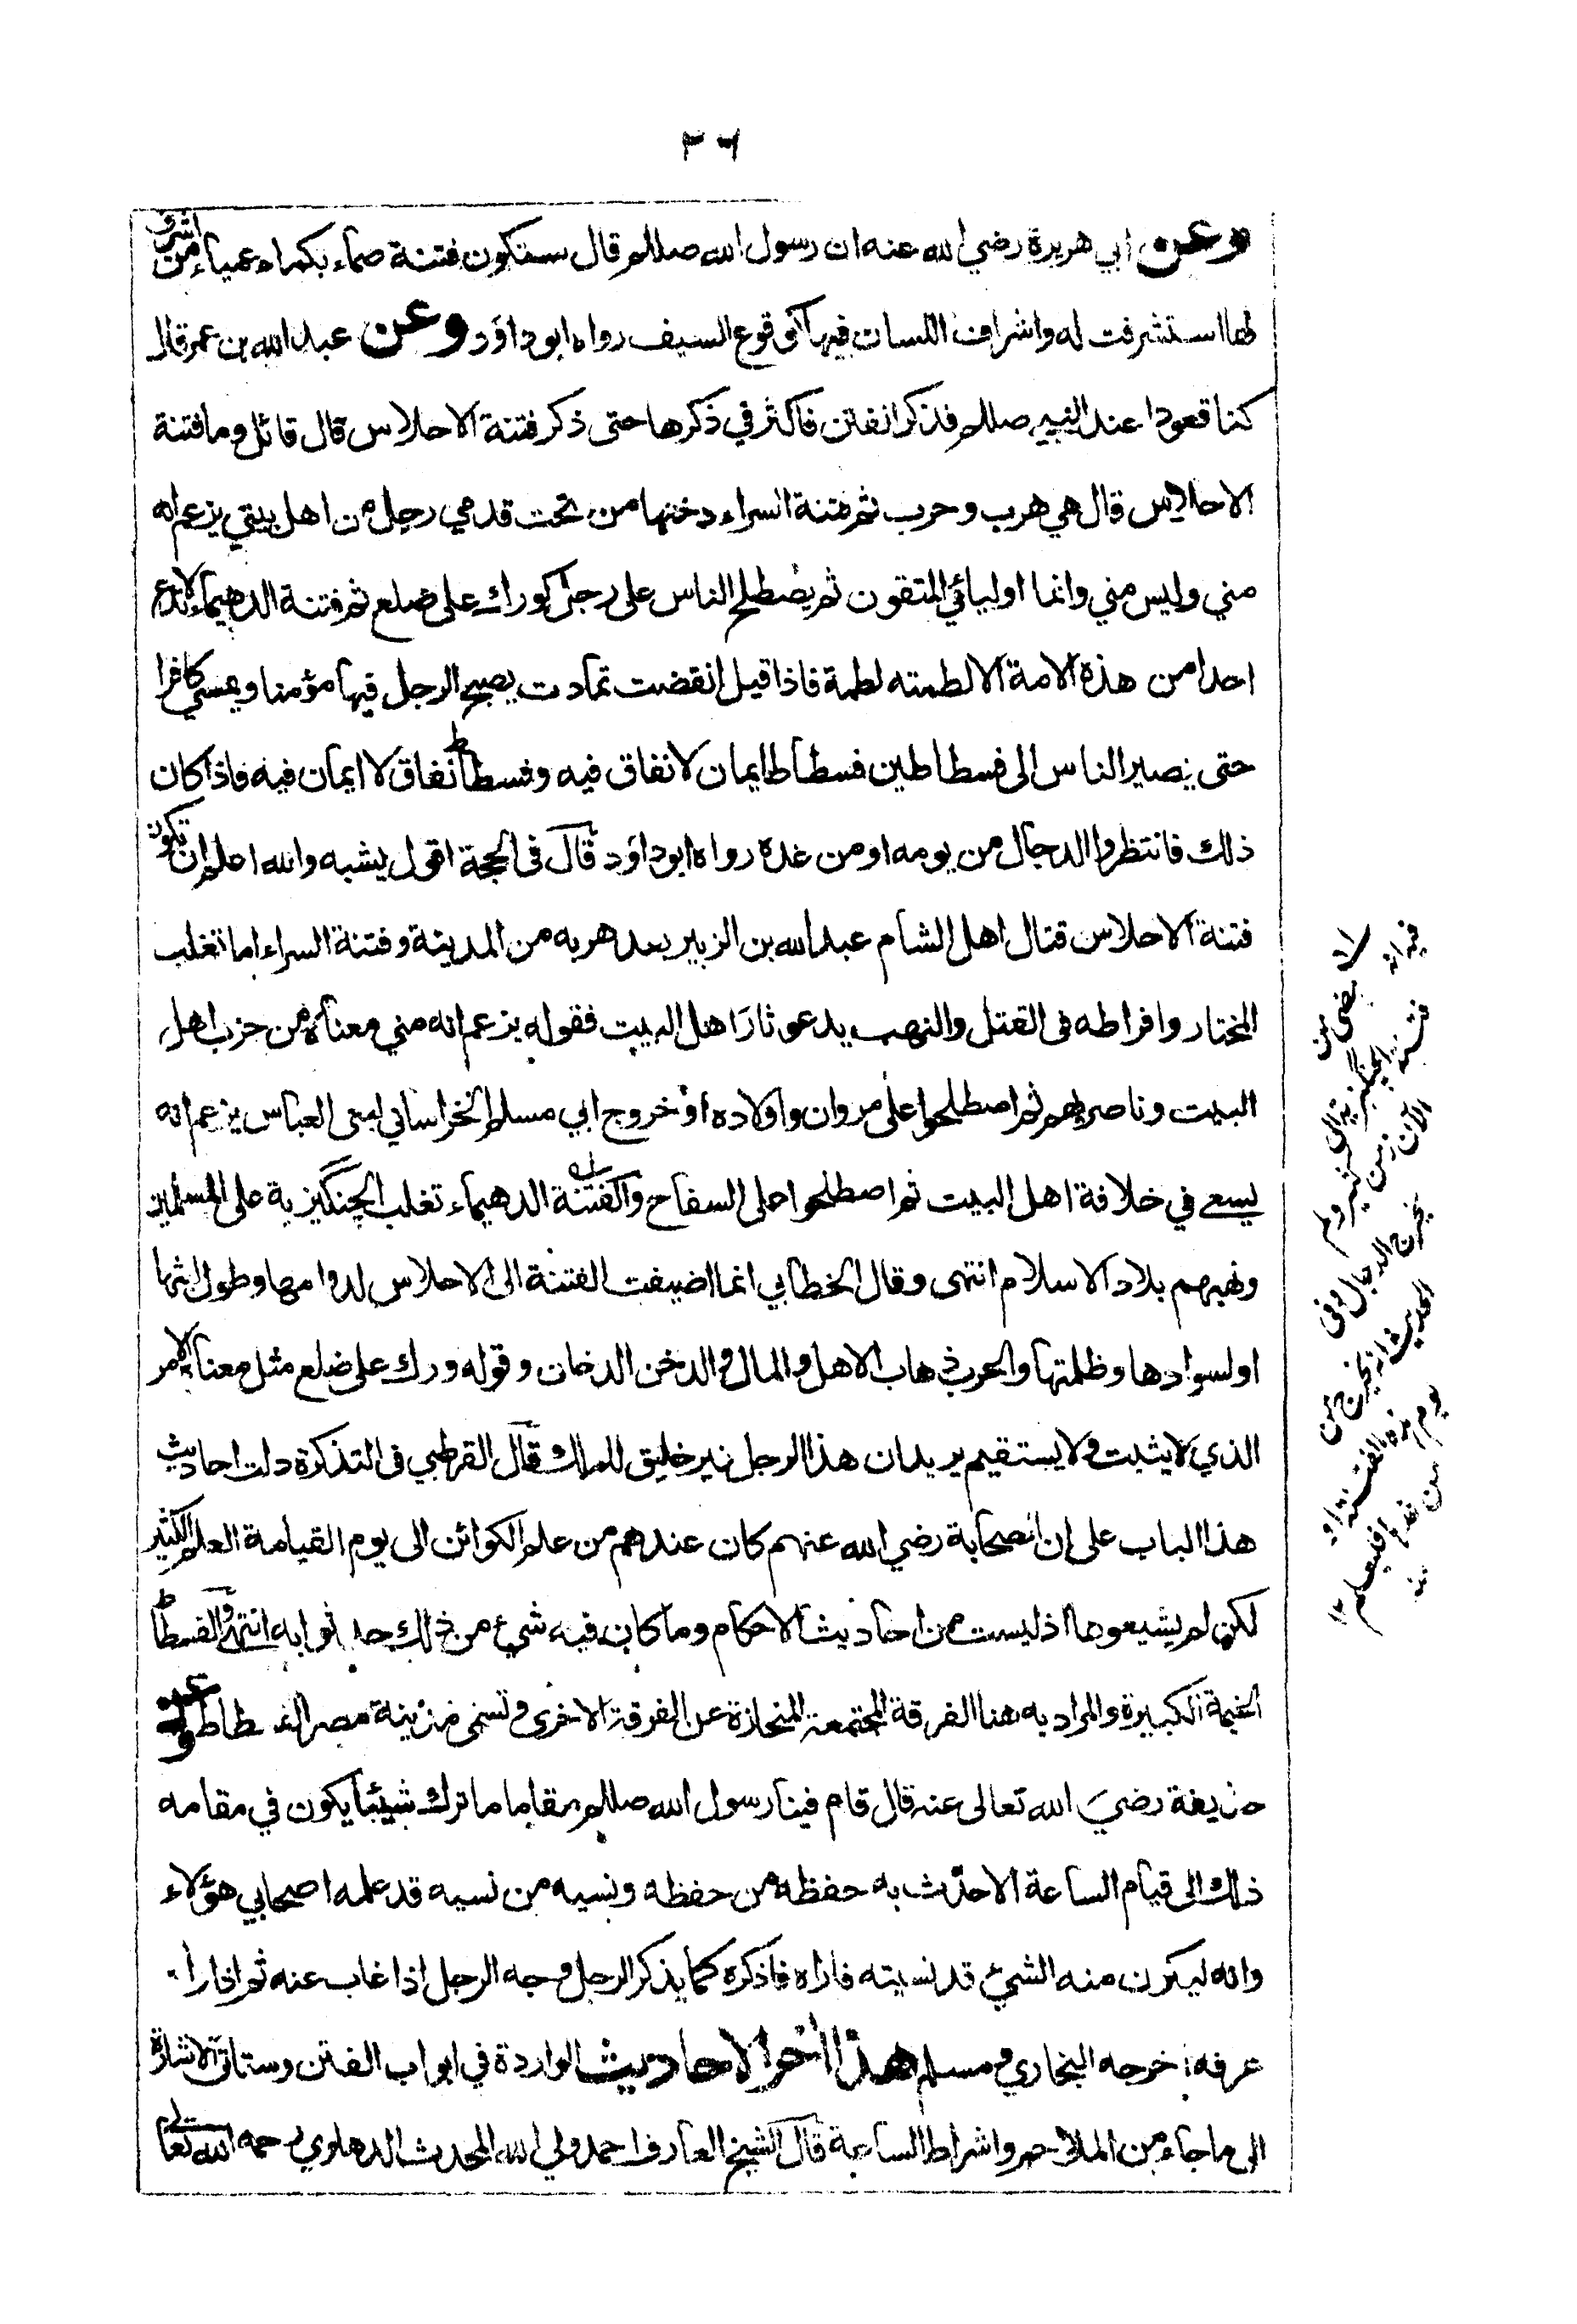 ٣٦
وعن ابي هريرة رضي الله عنه ان رسول الله صللم قال ستكون فتنة صماء بكماء عمياء من اشرف
لها استشرفت له واشراف اللسان فيها كوقوع السيف رواه ابو داؤد وعن عبد الله بن عمر قال
كنا قعودا عند النبي صللم فذكر الفتن فاكثر في ذكرها حتى ذكر فتنة الاحلاس قال قائل وما فتنة
الاحلاس قال هي هرب وحرب ثم فتنة السراء دخنها من تحت قدمي رجل من اهل بيتي يزعم انه
مني وليس مني وانما اوليائي المتقون ثم يصطلح الناس على رجل كورك على ضلع ثم فتنة الدهيماء لا تدع
احدا من هذه الامة الا لطمته لطمة فاذا قيل انقضت تمادت يصبح الرجل فيها مؤمنا ويمسي كافرا
حتى يصير الناس الى فسطاطين فسطاط ايمان لا نفاق فيه وفسطاط نفاق لا ايمان فيه فاذا كان
ذلك فانتظروا الدجال من يومه او من غده رواه ابو داؤد قال في الحجة اقول يشبه والله اعلم ان تكون
فتنة الاحلاس قتال اهل الشام عبد الله بن الزبير بعد هربه من المدينة وفتنة السراء اما تغلب
المختار وافراطه في القتل والنهب يدعو ثار اهل البيت فقوله يزعم انه مني معناه من حزب اهل
البيت وناصريهم ثم اصطلحوا على مروان واولاده او خروج ابي مسلم الخراساني لبنى العباس يزعم انه
يسعى في خلافة اهل البيت ثم اصطلحوا على السفاح والفتنة الدهيماء تغلب الچنگيزية على المسلمين
ونهبهم بلاد الاسلام انتهى وقال الخطابي انما اضيفت الفتنة الى الاحلاس لدوامها وطول لبثها
او لسوادها وظلمتها والحرب ذهاب الاهل والمال والدخن الدخان وقوله ورك على ضلع مثل معناه الامر
الذي لا يثبت ولا يستقيم يريد ان هذا الرجل غير خليق للملك قال القرطبي في التذكرة دلت احاديث
هذا الباب على ان الصحابة رضي الله عنهم كان عندهم من علم الكوائن الى يوم القيامة العلم الكثير
لكن لم يشيعوها اذ ليست من احاديث الاحكام وما كان فيه شيء من ذلك حدثوا به انتهى والفسطاط
الخيمة الكبيرة والمراد به هنا الفرقة المجتمعة المنحازة عن الفرقة الاخرى وتسمى مدينة مصر الفسطاط وعن
حذيفة رضي الله تعالى عنه قال قام فينا رسول الله صللم مقاما ما ترك شيئا يكون في مقامه
ذلك الى قيام الساعة الا حدّث به حفظه من حفظه ونسيه من نسيه قد علمه اصحابي هؤلاء
وانه ليكون منه الشيء قد نسيته فاراه فاذكره كما يذكر الرجل وجه الرجل اذا غاب عنه ثم اذا راه
عرفه اخرجه البخاري ومسلم هذا أخر الاحاديث الواردة في ابواب الفتن وستاتي الاشارة
الى ما جاء من الملاحم واشراط الساعة قال الشيخ العارف احمد ولي الله المحدث الدهلوي رحمه الله تعالى
فيه انه
لا يضى من
فتنة الچنگيزية الى
الآن زمن كثير ولم
يخرج الدجال وفي
الحديث انه يخرج من
يوم هذه الفتنة او
من غده فليعلم ١٢
منه